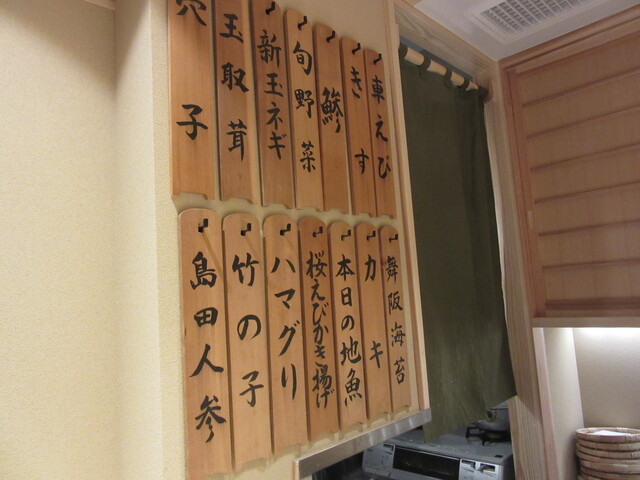 車えび
きす
鯵
旬野菜
新玉ネギ
玉取茸
穴子
舞阪海苔
カキ
本日の地魚
桜えびかき揚げ
ハマグリ
竹の子
島田人参